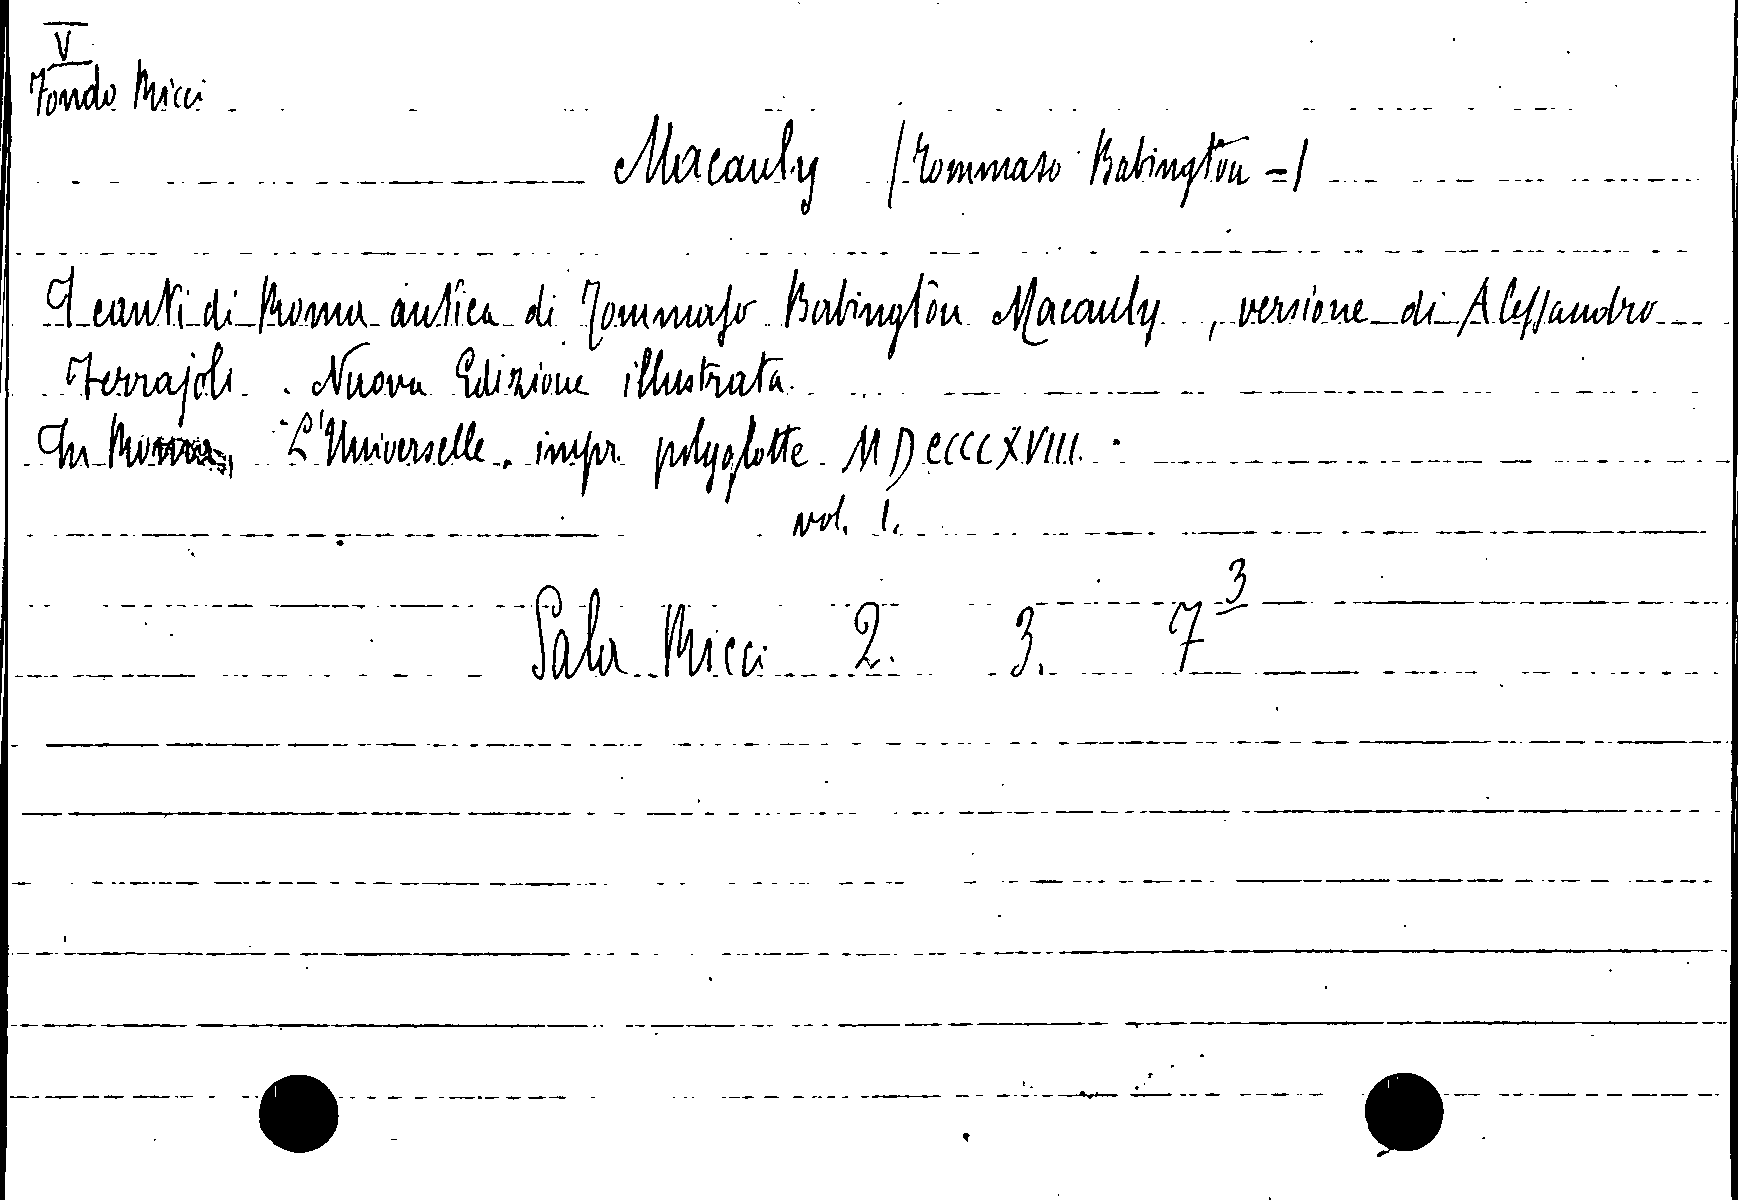 V
Fondo Ricci
Macauly /Tommaso Babington=/
I canti di Roma antica di Tommaso Babington Macauly, versione di Alessandro
Ferrajoli. Nuova Edizione illustrata.
In Roma, L'Universelle. impr. polyglotte MDCCCCXVIII.
vol. 1.
Sala Ricci 2. 3. 7 3